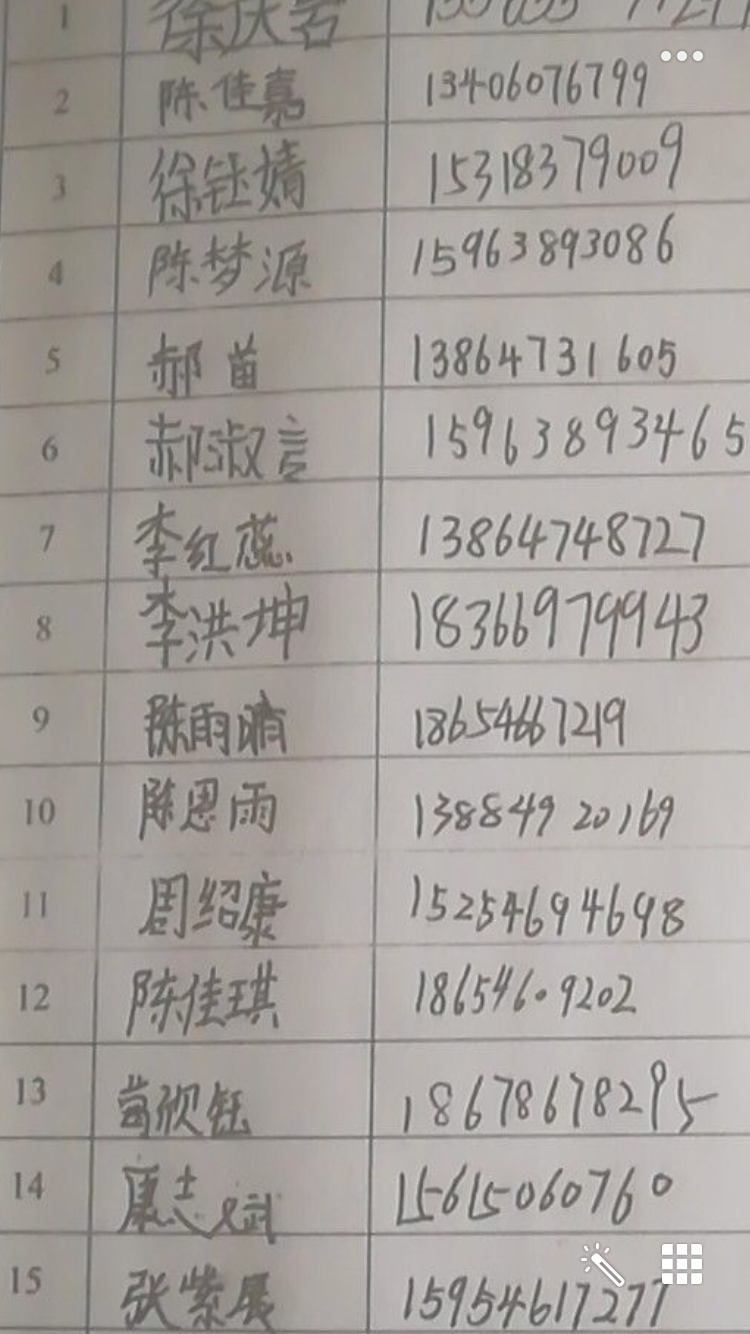 1
2 陈佳嘉 13406076799
3 徐钰婧 15318379009
4 陈梦源 15963893086
5 郝苗 13864731605
6 郝淑言 15963893465
7 李红蕊 13864748727
8 李洪坤 18366979943
9 陈雨晴 18654667219
10 陈恩雨 13884920169
11 周绍康 15254694698
12 陈佳琪 18654609202
13 苟欣钰 18678678295
14 康志斌 15615060760
15 张紫晨 15954617277